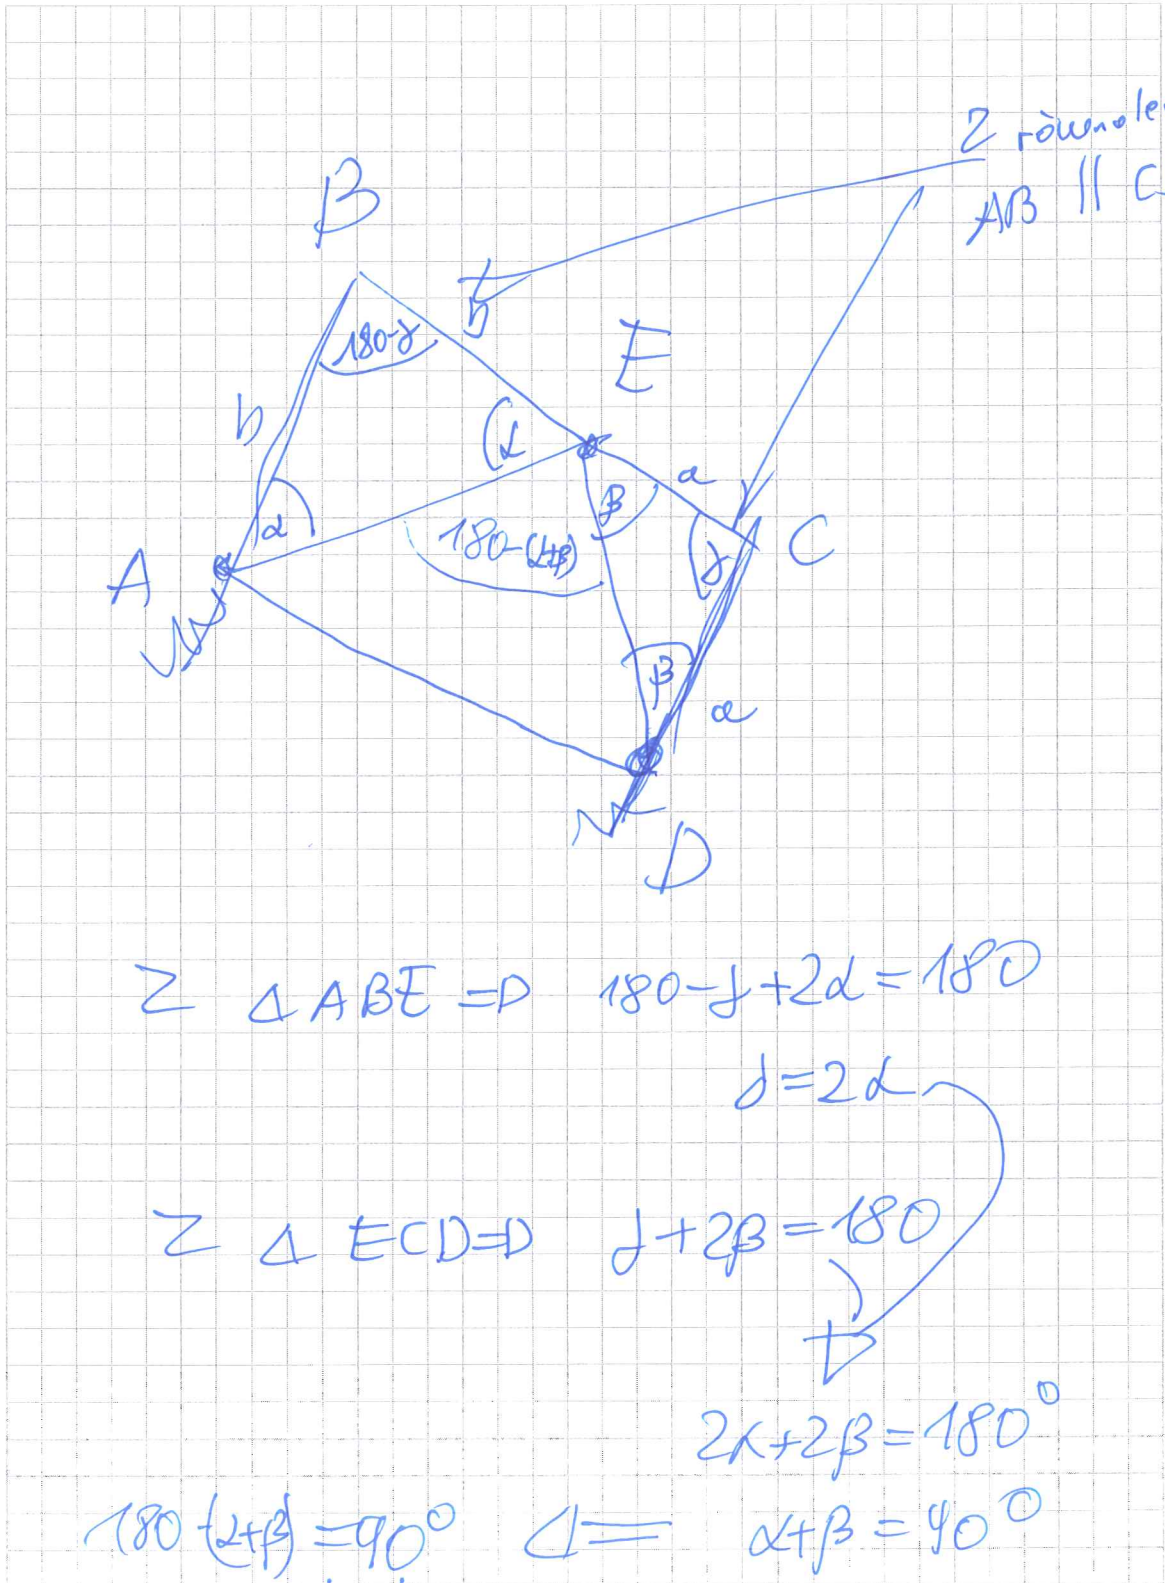 Z równole
AB || C
B
b
180-γ
E
b
α
a
β
α
180-(α+β)
γ
C
A
β
a
D
Z Δ ABE => 180-γ+2α=180
γ=2α
Z Δ ECD => γ+2β=180
2α+2β=180°
180-(α+β)=90° <= α+β=90°